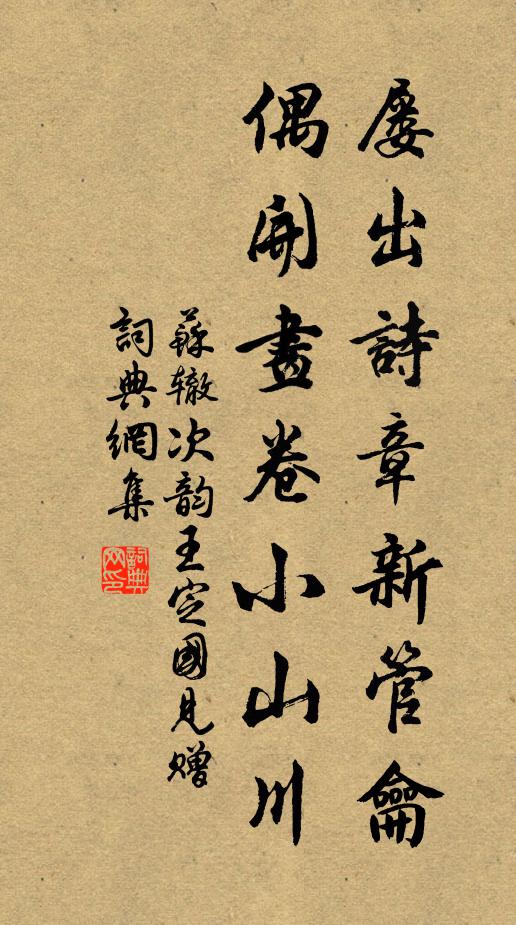 屡出詩章新管龠
偶開畫卷小山川
蘇辙次韵王定國見赠
詞典網集
詞典网印